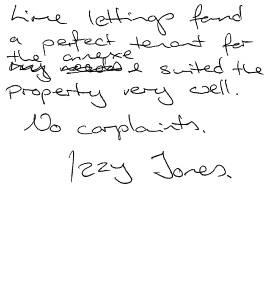 Lime lettings found
a perfect tenant for
the annexe
& suited the
property very well.
No complaints.
Izzy Jones.